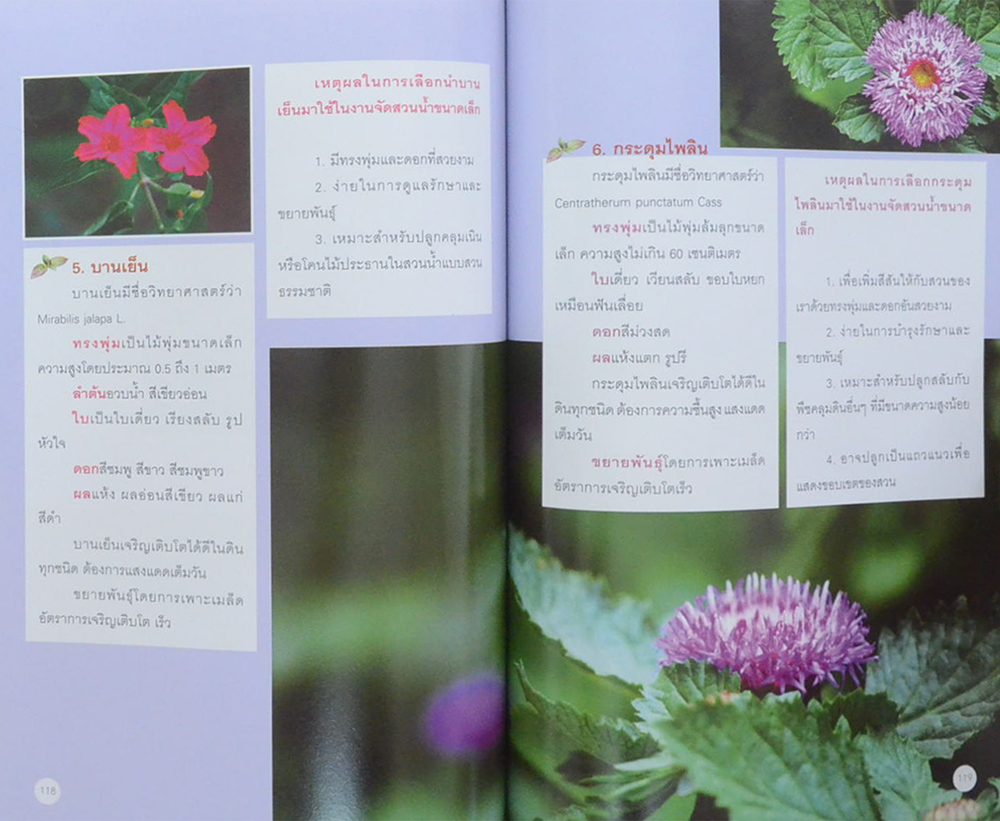 5. บานเย็น
บานเย็นมีชื่อวิทยาศาสตร์ว่า
Mirabilis jalapa L.
ทรงพุ่มเป็นไม้พุ่มขนาดเล็ก
ความสูงโดยประมาณ 0.5 ถึง 1 เมตร
ลำต้นอวบน้ำ สีเขียวอ่อน
ใบเป็นใบเดี่ยว เรียงสลับ รูป
หัวใจ
ดอกสีชมพู สีขาว สีชมพูขาว
ผลแห้ง ผลอ่อนสีเขียว ผลแก่
สีดำ
บานเย็นเจริญเติบโตได้ดีในดิน
ทุกชนิด ต้องการแสงแดดเต็มวัน
ขยายพันธุ์โดยการเพาะเมล็ด
อัตราการเจริญเติบโต เร็ว
เหตุผลในการเลือกนำบาน
เย็นมาใช้ในงานจัดสวนน้ำขนาดเล็ก
1. มีทรงพุ่มและดอกที่สวยงาม
2. ง่ายในการดูแลรักษาและ
ขยายพันธุ์
3. เหมาะสำหรับปลูกคลุมเนิน
หรือโคนไม้ประธานในสวนน้ำแบบสวน
ธรรมชาติ
118
6. กระดุมไพลิน
กระดุมไพลินมีชื่อวิทยาศาสตร์ว่า
Centratherum punctatum Cass
ทรงพุ่มเป็นไม้พุ่มล้มลุกขนาด
เล็ก ความสูงไม่เกิน 60 เซนติเมตร
ใบเดี่ยว เวียนสลับ ขอบใบหยก
เหมือนฟันเลื่อย
ดอกสีม่วงสด
ผลแห้งแตก รูปรี
กระดุมไพลินเจริญเติบโตได้ดีใน
ดินทุกชนิด ต้องการความชื้นสูง แสงแดด
เต็มวัน
ขยายพันธุ์โดยการเพาะเมล็ด
อัตราการเจริญเติบโตเร็ว
เหตุผลในการเลือกกระดุม
ไพลินมาใช้ในงานจัดสวนน้ำขนาด
เล็ก
1. เพื่อเพิ่มสีสันให้กับสวนของ
เราด้วยทรงพุ่มและดอกอันสวยงาม
2. ง่ายในการบำรุงรักษาและ
ขยายพันธุ์
3. เหมาะสำหรับปลูกสลับกับ
พืชคลุมดินอื่นๆ ที่มีขนาดความสูงน้อย
กว่า
4. อาจปลูกเป็นแถวแนวเพื่อ
แสดงขอบเขตของสวน
119